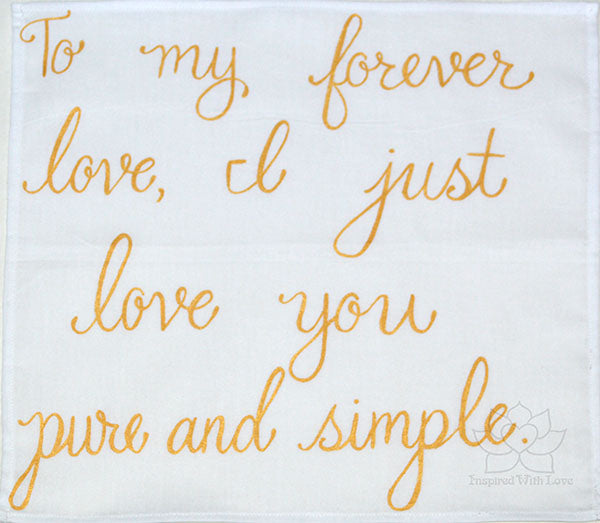 To my forever
love, I just
love you
pure and simple.
Inspired With Love